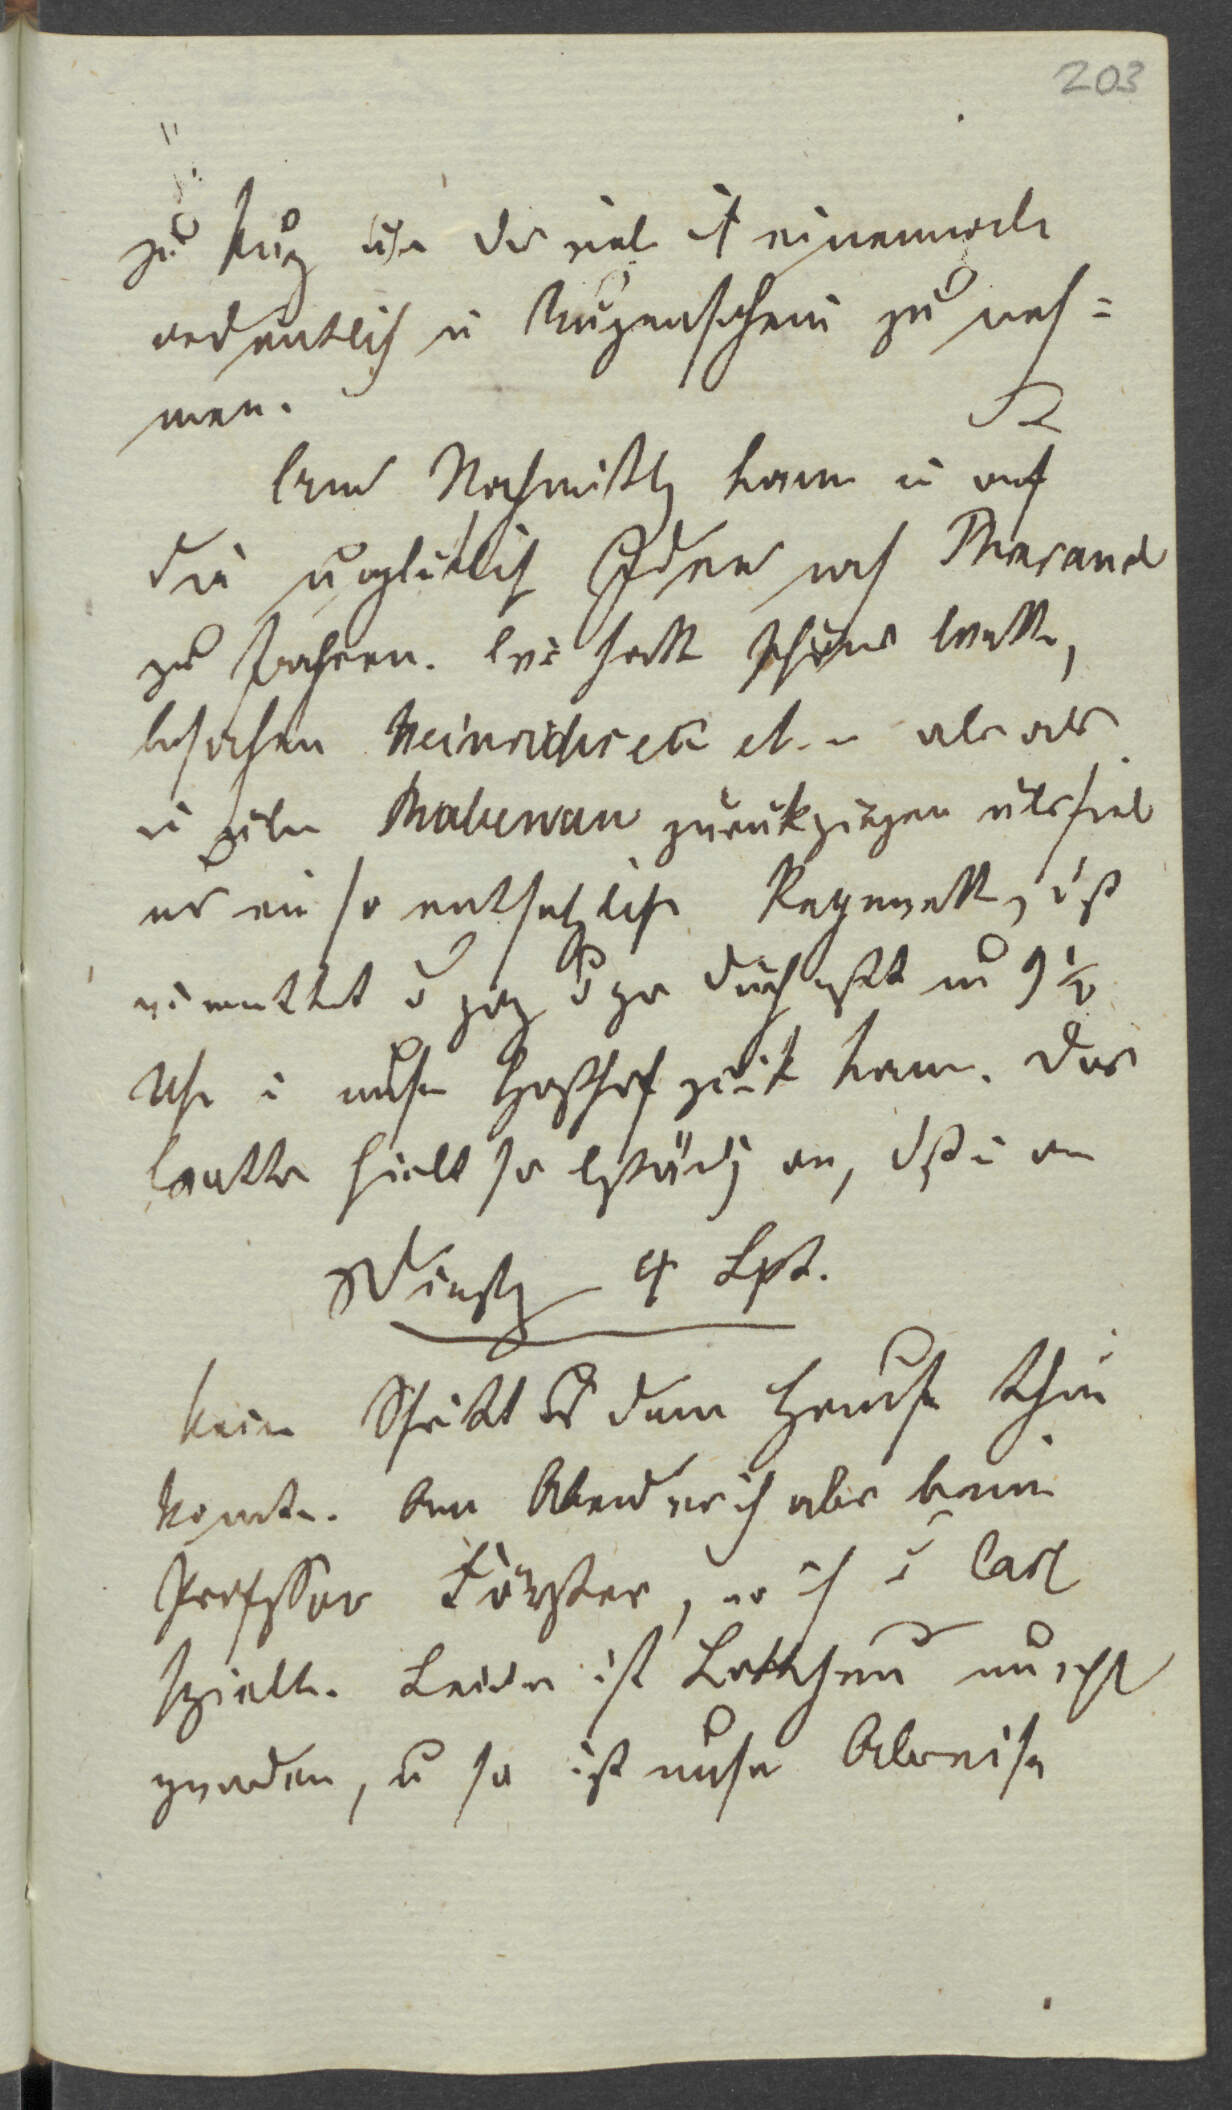 203
zu kurz um das viele ist einemmale
ordentlich in Augenschein zu neh=
men.
Nachmittg kam i auf
die unglüklich Idee nach Tharand
zu fahren. Wir hatt schöns Wett,
besahen Heinrichseck et. als ab
i über Rabenau zurükgiengen überfiel
uns ein so entsetzlich Regenwett, dß
i ermattet u gnz u gar durchnßt um 9 1/2
Uhr i unsr Gasthof zurük kam. Das
Wetter hielt so bstädg an, dß i am
Dienstg 4 Spt.
kein Schritt aus dem Hause thun
konnte. Am Abend war ich aber beim
Professor Förster, wo ich u Carl
spielte. Leider ist Lottchen unwohl
gworden, u so ist unsre Abreise